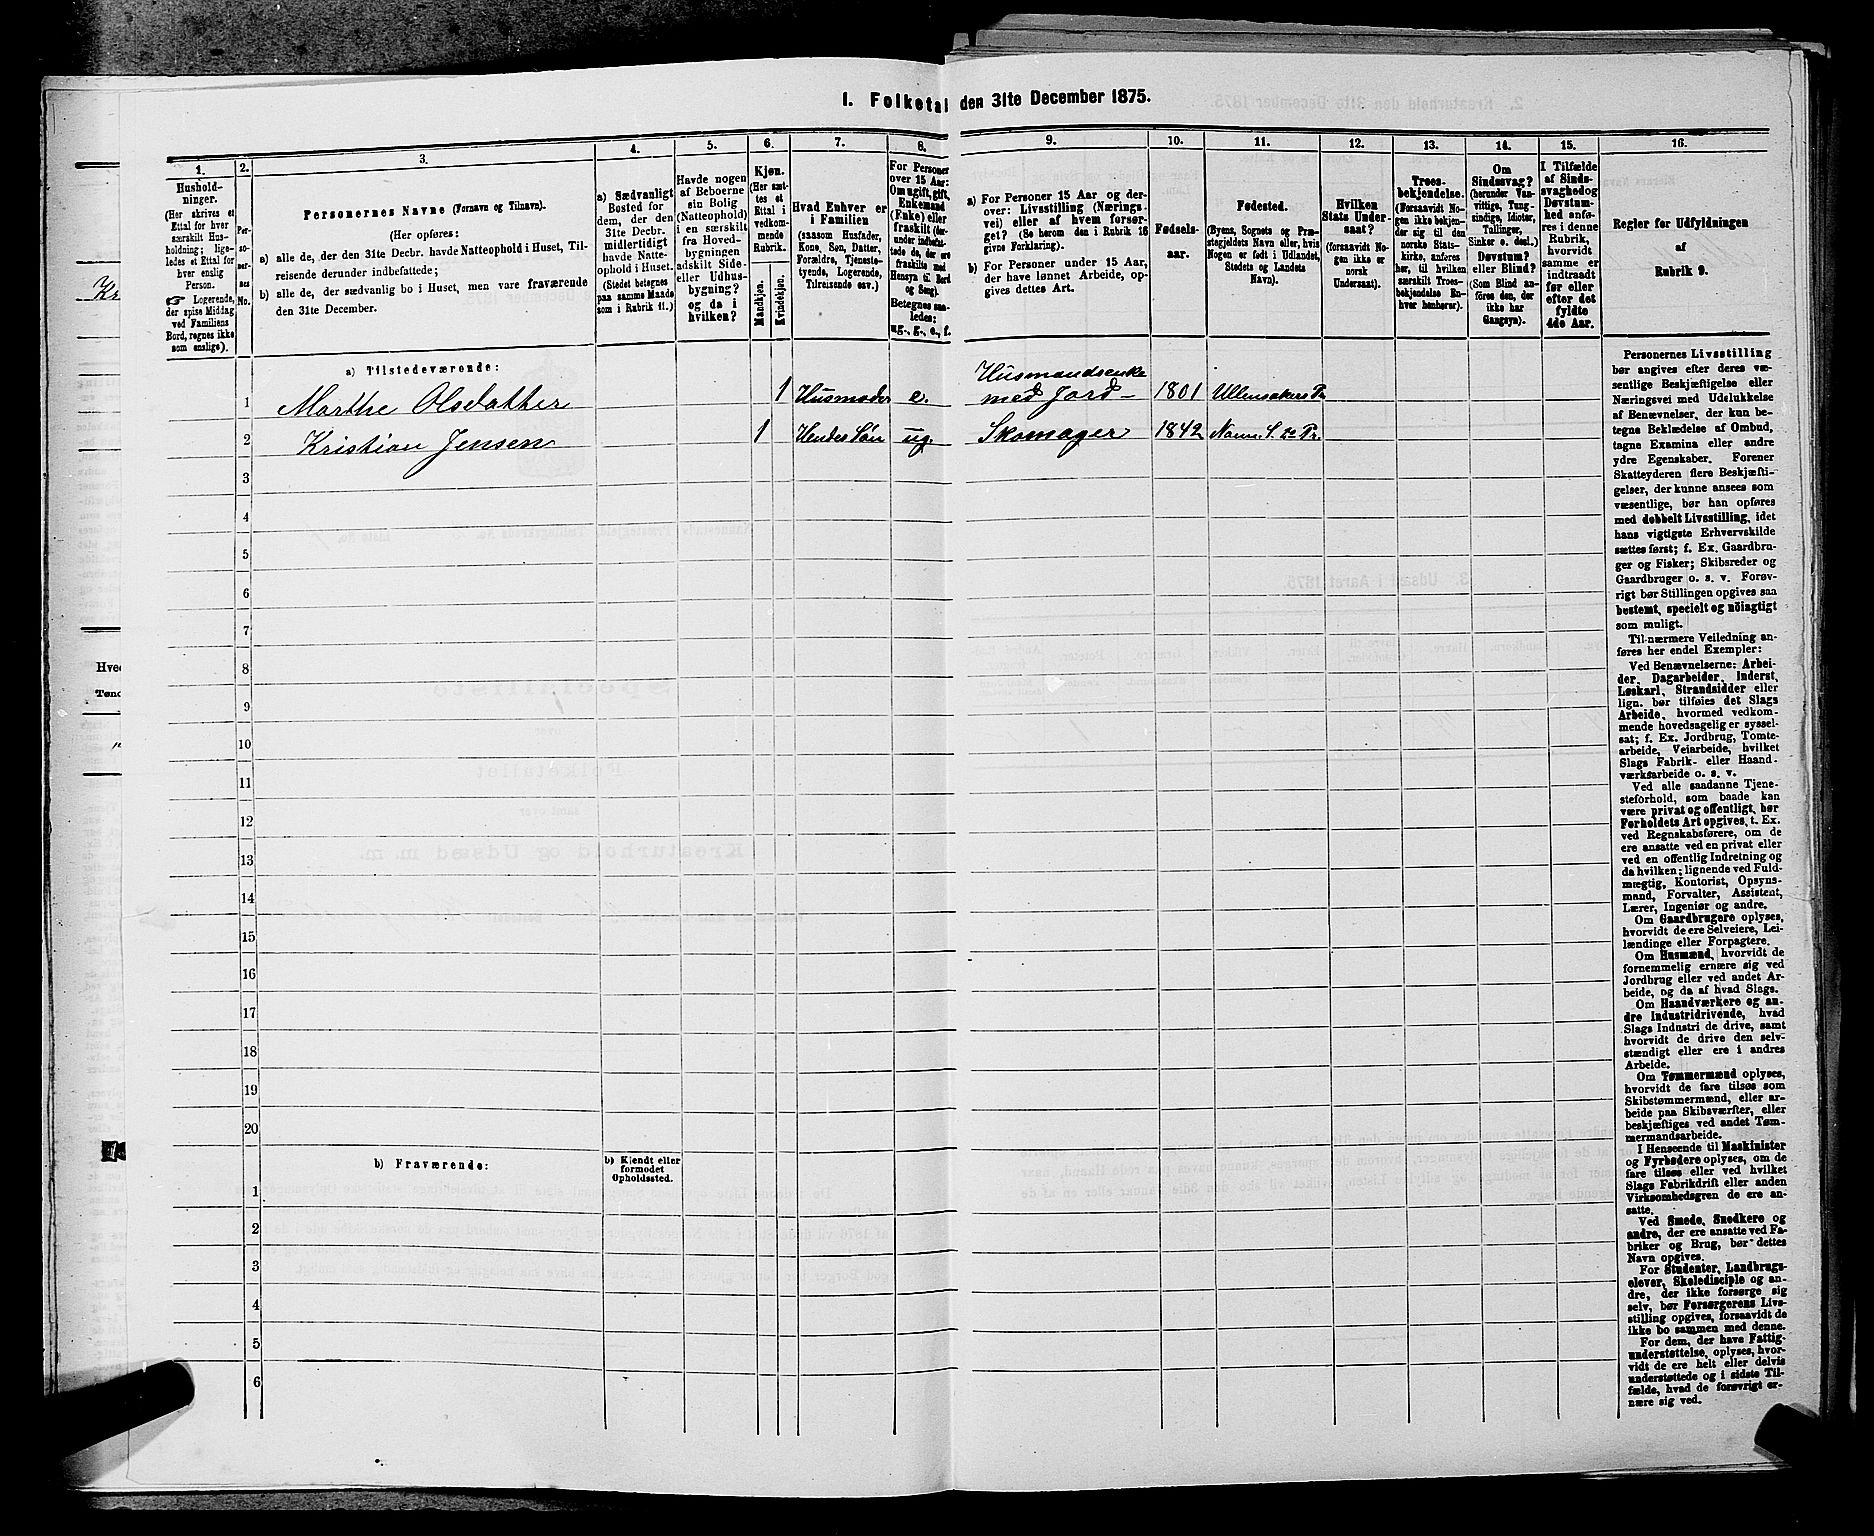 I. Folketal den 31te December 1875.
1.
Hushold-
ninger.
(Her skrives et
Ettal for hver
særskilt Hus-
holdning; lige-
ledes et Ettal for
hver enslig
Person.
Logerende,
der spise Middag
ved Familiens
Bord, regnes ikke
som enslige).
2.
Per-
so-
ner-
nes
No.
3.
Personernes Navne (Fornavn og Tilnavn).
(Her opføres:
a) alle de, der den 31te Decbr. havde Natteophold i Huset, Til-
reisende derunder indbefattede;
b) alle de, der sædvanlig bo i Huset, men vare fraværende
den 31te December.
4.
a) Sædvanligt
Bosted for
dem, der den
31te Decbr.
midlertidigt
havde Natte-
ophold i Huset.
(Stedet betegnes
paa samme Maade
som i Rubrik 11.)
5.
Havde nogen
af Beboerne
sin Bolig
(Natteophold)
i en særskilt
fra Hoved-
bygningen
adskilt Side-
eller Udhus-
bygning?
og da i
hvilken?
6.
Kjøn.
(Her sæt-
tes et
Ettal i
vedkom-
mende
Rubrik.
Mandkjøn.
Kvindekjøn.
7.
Hvad Enhver er
i Familien
(saasom Husfader,
Kone, Søn, Datter,
Forældre, Tjeneste-
tyende, Logerende,
Tilreisende osv.)
8.
For Personer
over 15 Aar:
Om ugift, gift,
Enkemand
(Enke) eller
fraskilt (der-
under indbefat-
tede de, der ere
fraskilte med
Hensyn til Bord
og Seng).
Betegnes saa-
ledes:
ug., g., e., f.
9.
a) For Personer 15 Aar og der-
over: Livsstilling (Nærings-
vei) eller af hvem forsør-
get? (Se herom den i Rubrik 16
givne Forklaring).
b) For Personer under 15 Aar,
der have lønnet Arbeide, op-
gives dettes Art.
10.
Fødsels-
aar.
11.
Fødested.
(Byens, Sognets og Præ-
stegjeldets Navn eller, hvis
Nogen er født i Udlandet,
Stedets og Landets
Navn).
12.
Hvilken
Stats Under-
saat?
(forsaavidt No-
gen ikke er
norsk
Undersaat).
13.
Troes-
bekjendelse.
(Forsaavidt No-
gen ikke bekjen-
der sig til den
norske Stats-
kirke, anføres
her, til hvilken
særskilt Troes-
bekjendelse En-
hver henhører).
14.
Om
Sindssvag?
(herunder Van-
vittige, Tung-
sindige, Idioter,
Tullinger,
Sinker o. desl.).
Døvstum?
eller Blind?
(Som Blind an-
føres den, der
ikke har
Gangsyn).
15.
I Tilfælde
af Sinds-
svaghed og
Døvstum-
hed anfø-
res i denne
Rubrik,
hvorvidt
samme er
indtraadt
før eller
efter det
fyldte
4de Aar.
16.
Regler før Udfyldningen
af
Rubrik 9.
a) Tilstedeværende:
1 Marthe Olsdatter 1 Husmoder e. Husmandsenke
med Jord 1801 Ullensakers Pr.
2 Kristian Jensen 1 Hendes Søn ug. Skomager 1842
3
4
5
6
7
8
9
10
11
12
13
14
15
16
17
18
19
20
b) Fraværende:
b) Kjendt eller
formodet
Opholdssted.
1
2
3
4
5
6
Personernes Livsstilling
bør angives efter deres væ-
sentlige Beskjæftigelse eller
Næringsvei med Udelukkelse
af Benævnelser, der kun be-
tegne Beklædelse af Ombud,
tagne Examina eller andre
ydre Egenskaber. Forener
Skatteyderen flere Beskjæfti-
gelser, der kunne ansees som
væsentlige, bør han opføres
med dobbelt Livsstilling, idet
hans vigtigste Erhvervskilde
sættes først; f. Ex. Gaardbru-
ger og Fisker; Skibsreder og
Gaardbruger o. s. v. Forøv-
rigt bør Stillingen opgives saa
bestemt, specielt og nöiagtigt
som muligt.
Til nærmere Veiledning an-
føres her endel Exempler:
Ved Benævnelserne: Arbei-
der, Dagarbeider, Inderst,
Løskarl, Strandsidder eller
lign. bør tilføies det Slags
Arbeide, hvormed vedkom-
mende hovedsagelig er syssel-
sat; f. Ex. Jordbrug, Tomte-
arbeide, Veiarbeide, hvilket
Slags Fabrik- eller Haand-
værksarbeide o. s. v.
Ved alle saadanne Tjene-
steforhold, som baade kan
være privat og offentligt, bør
Forholdets Art opgives, t. Ex.
ved Regnskabsførere, om de
ere ansatte ved en privat eller
ved en offentlig Indretning og
da hvilken; lignende ved Fuld-
mægtig, Kontorist, Opsyns-
mand, Forvalter, Assistent,
Lærer, Ingeniør og andre.
Om Gaardbrugere oplyses,
hvorvidt de ere Selveiere, Lei-
lændinge eller Forpagtere.
Om Husmænd, hvorvidt de
fornemmelig ernære sig ved
Jordbrug eller ved andet Ar-
beide, og da af hvad Slags.
Om Haandværkere og an-
dre Industridrivende, hvad
Slags Industri de drive, samt
hvorvidt de drive den selv-
stændigt eller ere i andres
Arbeide.
Om Tømmermænd oplyses,
hvorvidt de fare tilsøs som
Skibstømmermænd, eller ar-
beide paa Skibsværfter, eller
beskjæftiges ved andet Tøm-
mermandsarbeide.
I Henseende til Maskinister
og Fyrbødere oplyses, om de
fare tilsøs eller ved hvilket
Slags Fabrikdrift eller anden
Virksomhedsgren de ere an-
satte.
Ved Smede, Snedkere og
andre, der ere ansatte ved Fa-
briker og Brug, bør dettes
Navn opgives.
For Studenter, Landbrugs-
elever, Skoledisciple og an-
dre, der ikke forsørge sig
selv, bør Forsørgerens Livs-
stilling opgives, forsaavidt de
ikke bo sammen med denne.
For dem, der have Fattig-
understøttelse, oplyses, hvor-
vidt de ere helt eller delvis
understøttede og i sidste Til-
fælde, hvad de forøvrigt er-
nære sig ved.